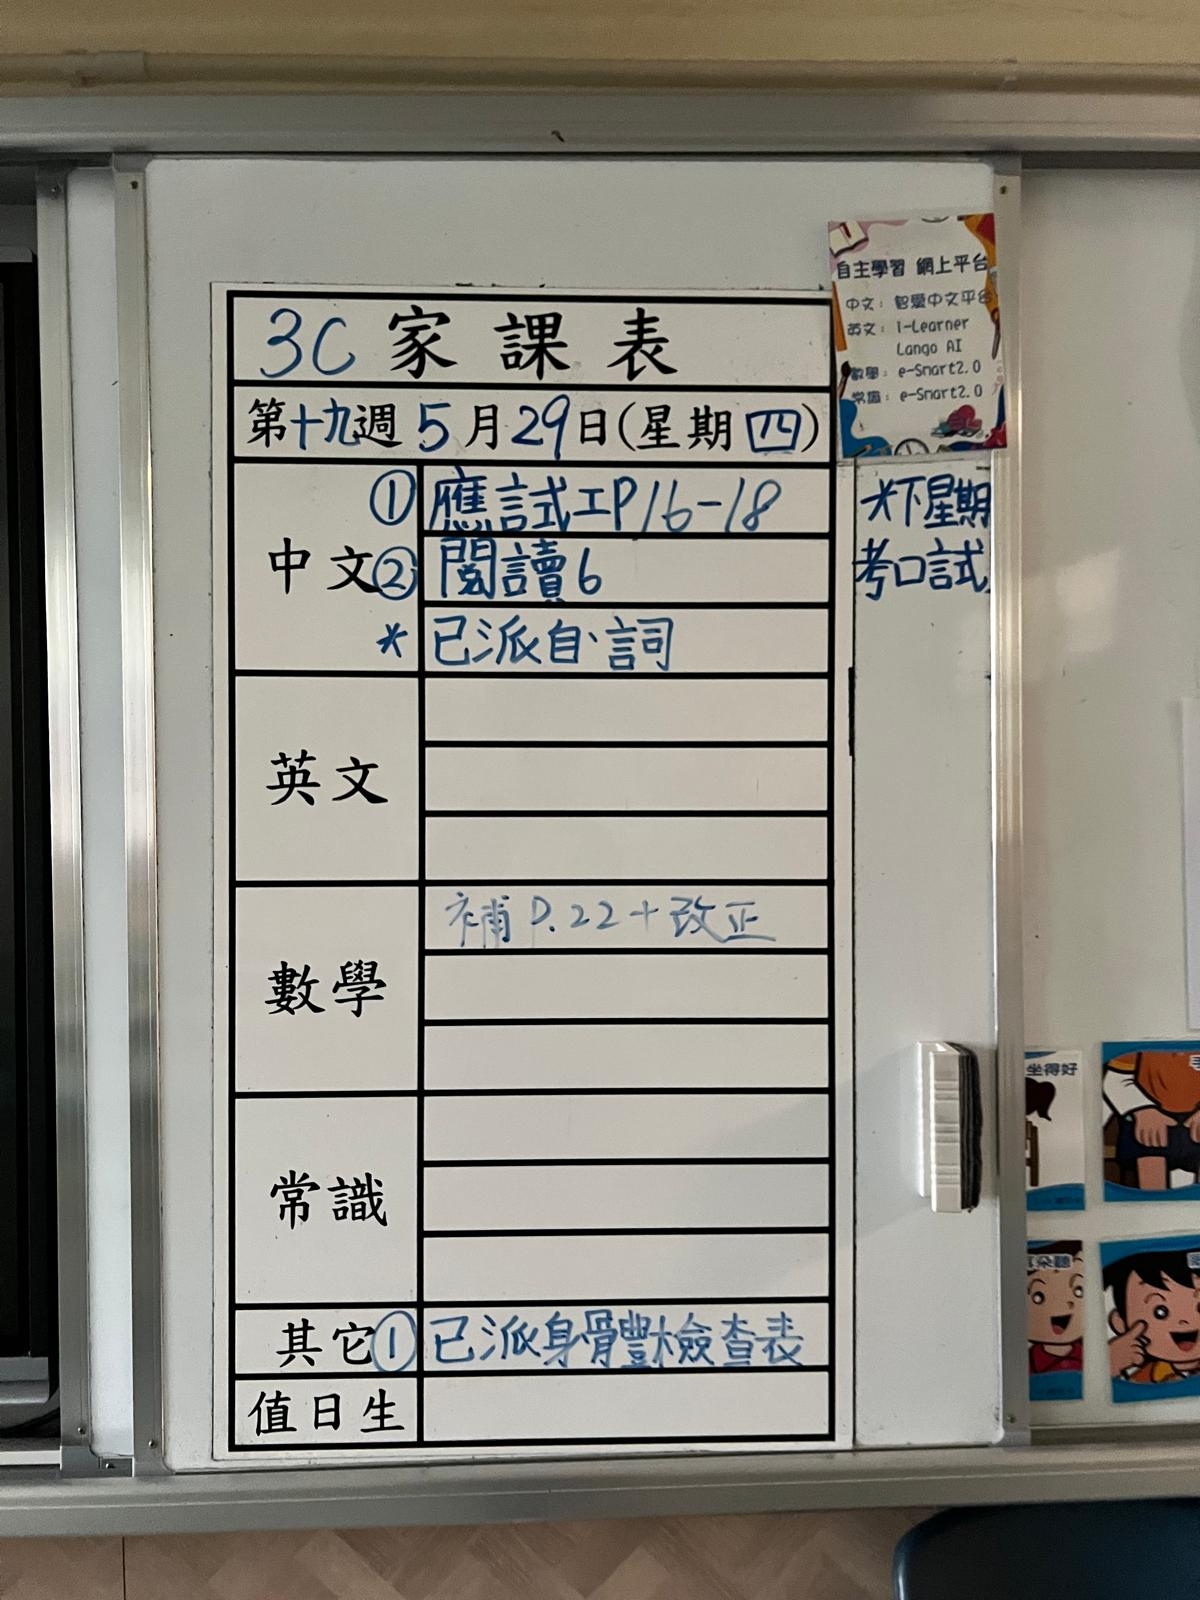 3C 家課表
第十九週 5月29日(星期四)
中文
① 應試工P16-18
② 閱讀6
* 已派自·詞
英文
數學
補 P.22+改正
常識
其它
① 已派身體檢查表
值日生
自主學習 網上平台
中文: 智愛中文平台
英文: I-Learner
Lango AI
數學: e-Smart2.0
常識: e-Smart2.0
*下星期
考口試
坐得好